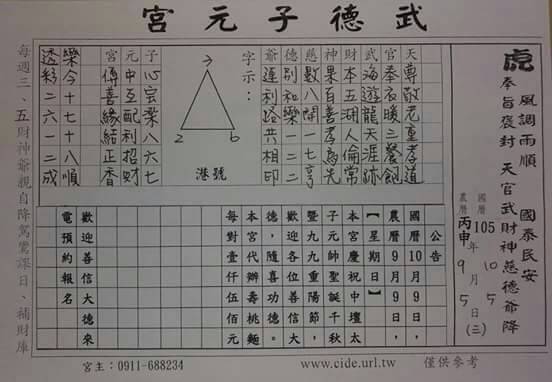 武德子元宮
虎
風調雨順 國泰民安
奉旨褒封 天官武財神慈德爺降
國曆 105年10月5日(三)
農曆 丙申 9月5日
天尊敬老重孝道
官奉衣暖三餐飽
武海遊龍天涯跡
財本五湖人倫常
神果百善孝為先
慈數八開一
德別和樂一二二
爺運利路共相印
字示：
3
2 6
港號
子心八六七
元中互配利招財
宮傳善緣結正香
樂今十七十八順
透彩二六一二成
公告
國曆10月9日，
農曆9月9日，
【星期日】
本宮慶祝中壇太
子元帥聖誕千秋
暨九九重陽節，
歡迎各位善信大
德，隨喜功德。
本宮代辦壽桃麵
每對壹仟伍佰元
歡迎善信大德來
電預約報名
每週三、五財神爺親自降駕課日、補財庫
宮主：0911-688234
www.cide.url.tw
僅供參考